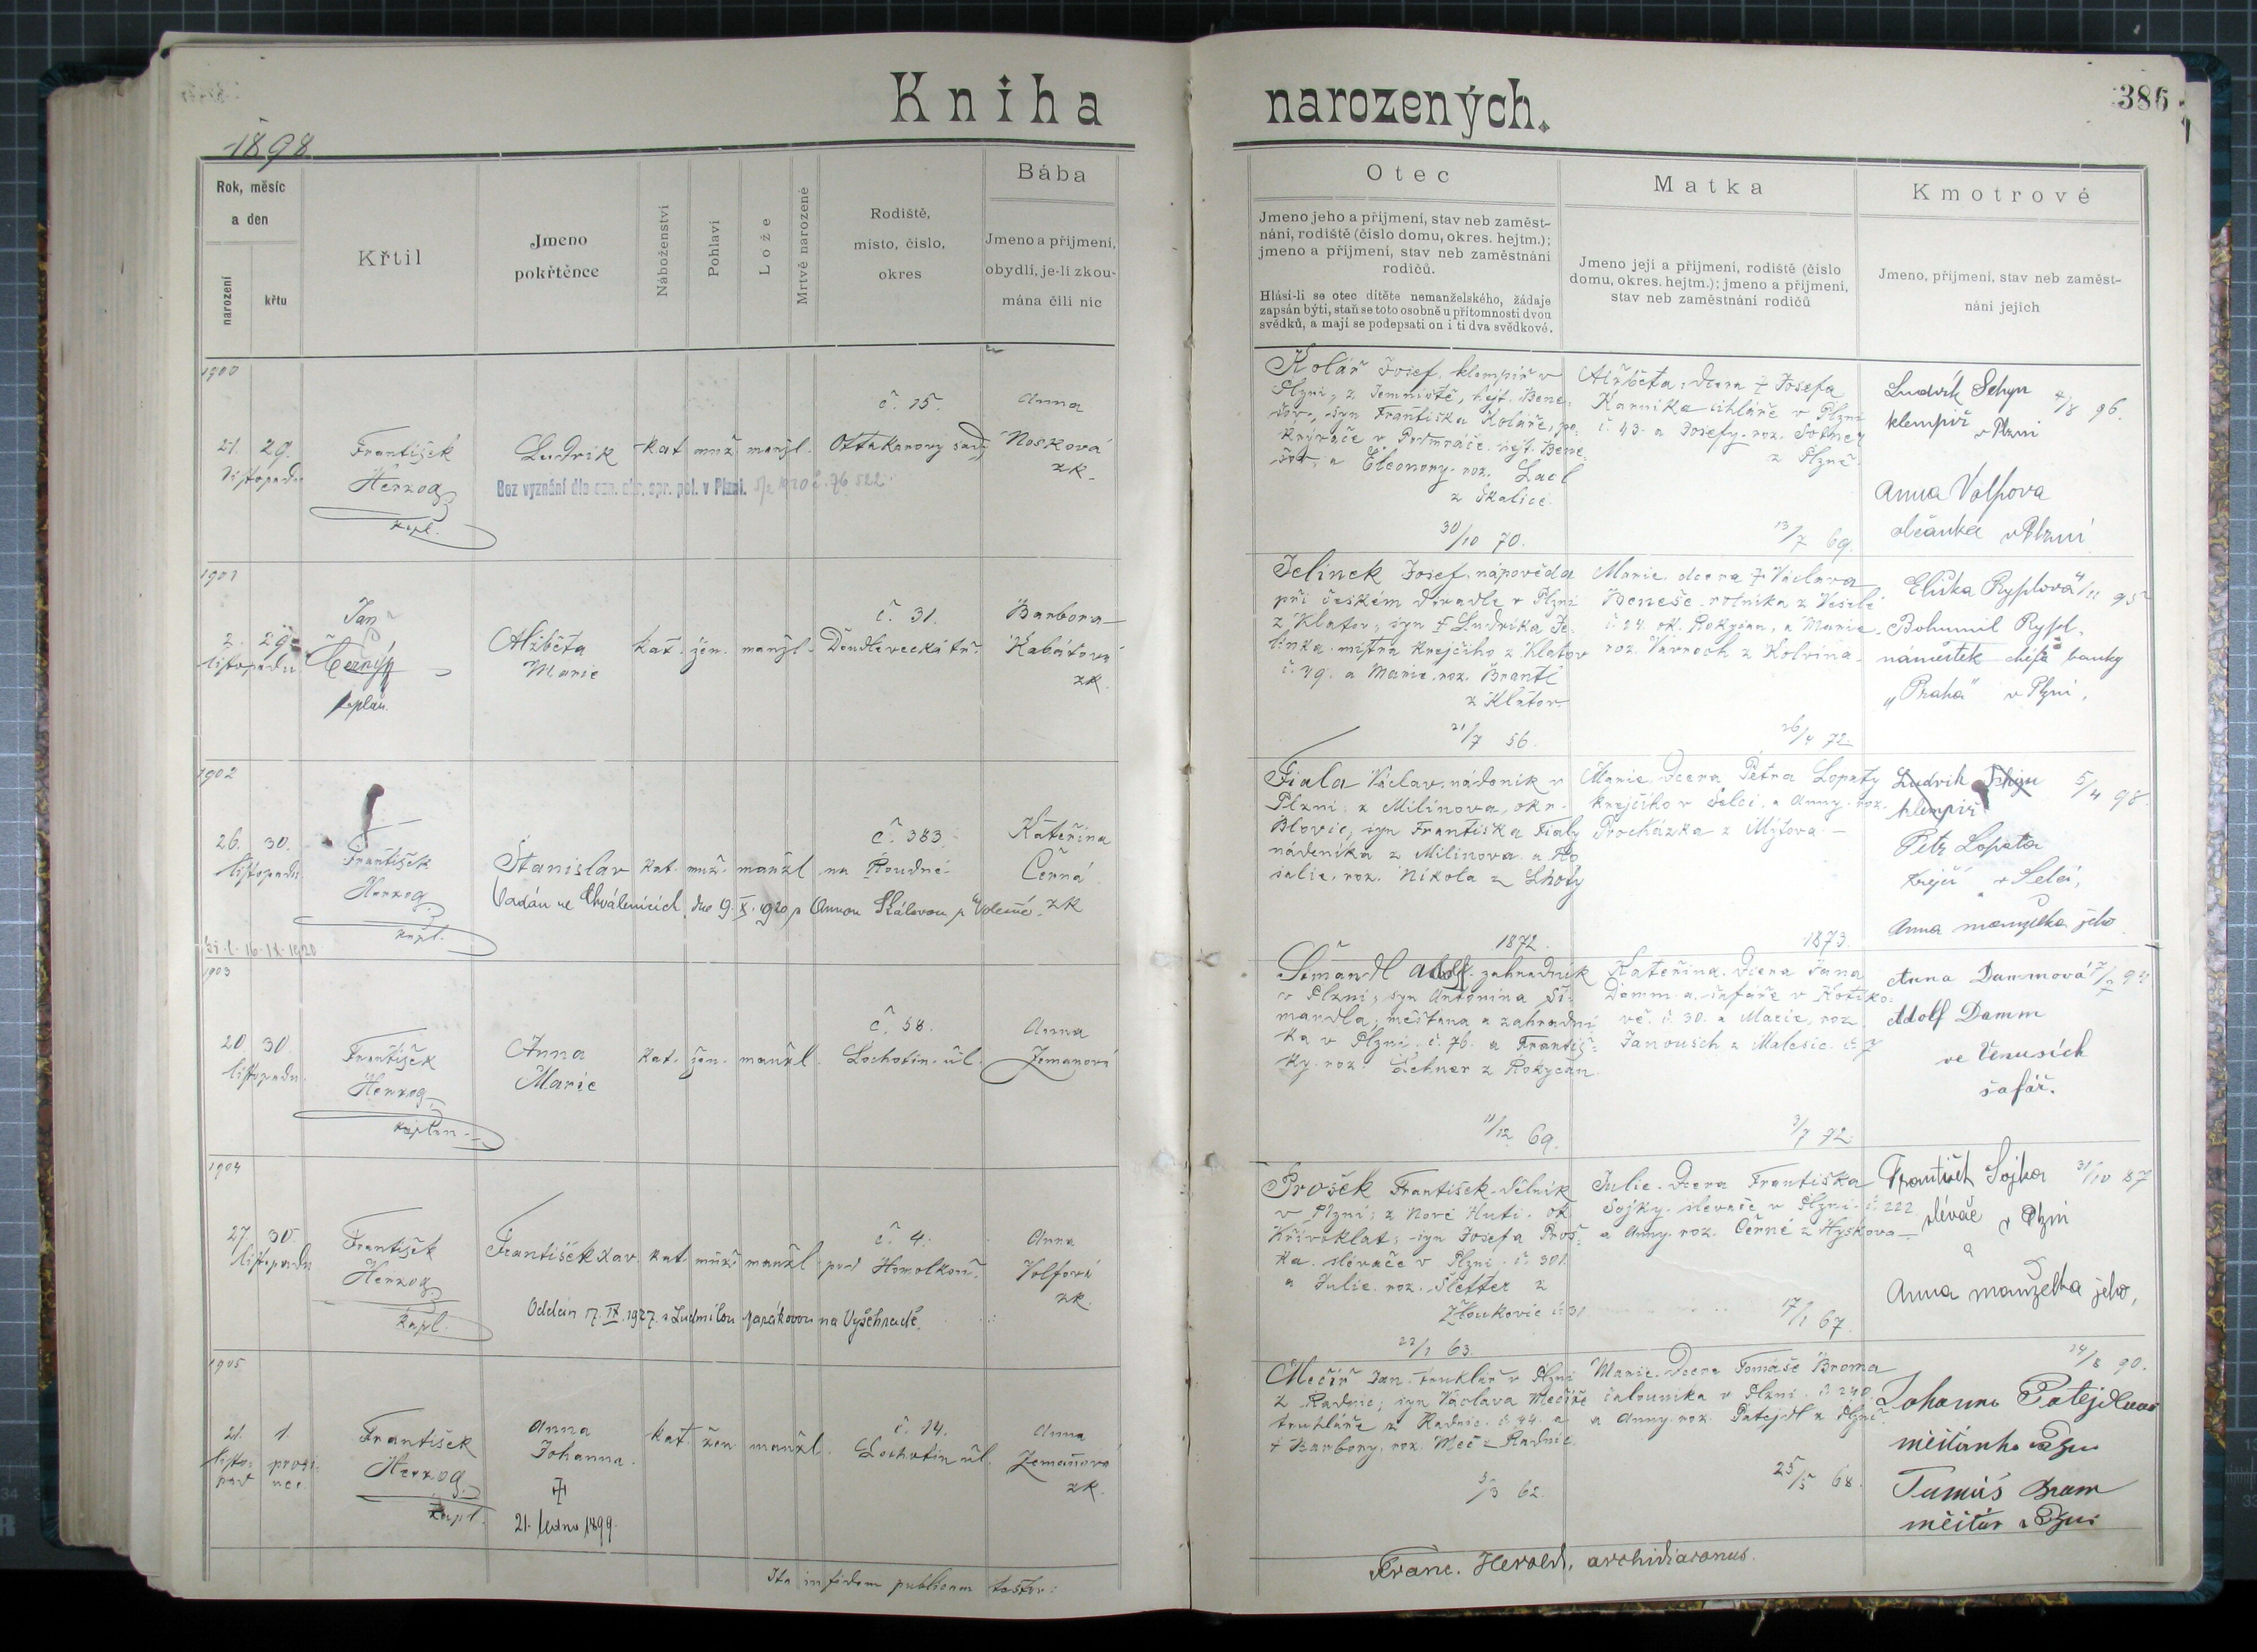 Kniha narozených.
386
1898
Rok, měsíc
a den
narození
křtu
Křtil
Jmeno
pokřtěnce
Náboženství
Pohlaví
Lože
Mrtvě narozené
Rodiště,
místo, číslo,
okres
Bába
Jmeno a příjmení,
obydlí, je-li zkou-
mána čili nic
Otec
Jmeno jeho a příjmení, stav neb zaměst-
nání, rodiště (číslo domu, okres. hejtm.);
jmeno a příjmení, stav neb zaměstnání
rodičů.
Hlásí-li se otec dítěte nemanželského, žádaje
zapsán býti, staň se toto osobně u přítomnosti dvou
svědků, a mají se podepsati on i ti dva svědkové.
Matka
Jmeno její a příjmení, rodiště (číslo
domu, okres. hejtm.); jmeno a příjmení,
stav neb zaměstnání rodičů
Kmotrové
Jmeno, příjmení, stav neb zaměst-
nání jejich
1900
21. 29.
listopadu
František
Herzog
kapl.
Ludvík
kat. muž. manžl.
č. 15.
Ottakarovy sady
Anna
Nosková
zk.
Bez vyznání dle ozn. okr. spr. pol. v Plzni.
Kolář Josef, klempíř v
Plzni, z Jemniště, hejt. Bene-
šov, syn Františka Koláře, po-
krývače v hejt. Bene-
šov, a Eleonory roz.
z Skalice.
30/10 70.
Alžběta, dcera † Josefa
Karníka cihláře v Plzni
č. 43. a Josefy roz.
z Plzně.
13/7 69.
Ludvík Schyn 4/8 96.
klempíř
v Plzni
Anna Volfova
občanka v Plzni
1901
2. 29.
listopadu
Jan
Černý
kaplan.
Alžběta
Marie
kat. žen. manžl.
č. 31.
Doudlevecká tř.
Barbora
Kabátová
zk.
Jelínek Josef, nápověda
při českém divadle v Plzni
z Klatov, syn † Ludvíka Je-
línka, mistra krejčího z Klatov
č. 49. a Marie roz. Brantl
z Klatov.
21/7 56.
Marie, dcera † Václava
Beneše, rolníka z Veselé
č. 24. ok. Rokycan, a Marie
roz. z
26/4 72
Eliška Ryplova 4/11 95
Bohumil Rypl,
náměstek chéfa banky
„Praha" v Plzni,
1902
26. 30.
listopadu
František
Herzog
kapl.
Stanislav
kat. muž. manžl.
č. 383.
na Roudné
Kateřina
Černá
zk
Oddán ve Chválenicích, dne 9. X. 1920 s Annou
16. IX. 1920
Fiala Václav, nádeník v
Plzni, z Milínova, okr.
Blovic, syn Františka Fialy
nádeníka z Milínova a Ro-
salie, roz. Nikola z Lhoty
1872.
Marie, dcera Petra Lopaty
krejčího v Selci, a Anny roz.
Procházka z Mýtova.
1873.
Ludvík Schyn 5/4 98.
klempíř
Petr Lopata
krejčí v Selci,
a
Anna manželka jeho
1903
20. 30.
listopadu
František
Herzog
kaplan
Anna
Marie
kat. žen. manžl.
č. 58.
Lochotín. ul.
Anna
Zemanová
Šimandl Adolf, zahradník
v Plzni, syn Antonína Ši-
mandla, měšťana a zahradní-
ka v Plzni č. 76. a Františ-
ky roz. Lehner z Rokycan
11/12 69.
Kateřina, dcera Jana
Damm a, šafáře v Kotíko-
vě. č. 30. a Marie, roz.
Janousch z Malesic. č. 7
3/7 72
Anna Dammová
Adolf Damm
ve Venusích
šafář.
1904
27. 30.
listopadu
František
Herzog
kapl.
František Xav.
kat. muž. manžl.
č. 4.
pod Homolkou.
Anna
Volfová
zk.
Oddán 17. IX. 1927 s Ludmilou na Vyšehradě.
Prošek František, dělník
v Plzni, z Nové Huti, ok.
Křivoklat, syn Josefa Proš-
ka, slévače v Plzni č. 301.
a Julie roz. Sletter z
Žloukovic č. 31
22/1 63.
Julie, dcera Františka
Sojky, slévače v Plzni č. 222
a Anny roz. Černé z Hyskova
17/1 67.
František Sojka 31/10 87
slévač v Plzni
a
Anna manželka jeho,
1905
21. 1.
listo- prosi-
pad nce
František
Herzog
kapl.
Anna
Johanna.
†
21. ledna 1899.
kat. žen. manžl.
č. 14.
Lochotín ul.
Anna
Zemanová
zk.
Mečíř Jan, truhlář v Plzni
z Radnic, syn Václava Mečíře
truhláře z Radnic č. 44. a
† Barbory, roz. Meč z Radnic.
3/3 62.
Marie, dcera Tomáše Broma
čalouníka v Plzni č. 240.
a Anny roz. Patejdl z Plzně.
25/5 68.
24/8 90.
Johanna Patejdlova
měšťanka v Plzni
Tomáš Brom
měšťan v Plzni
Ita in fidem publicam testor:
Franc. Herold, archidiaconus.